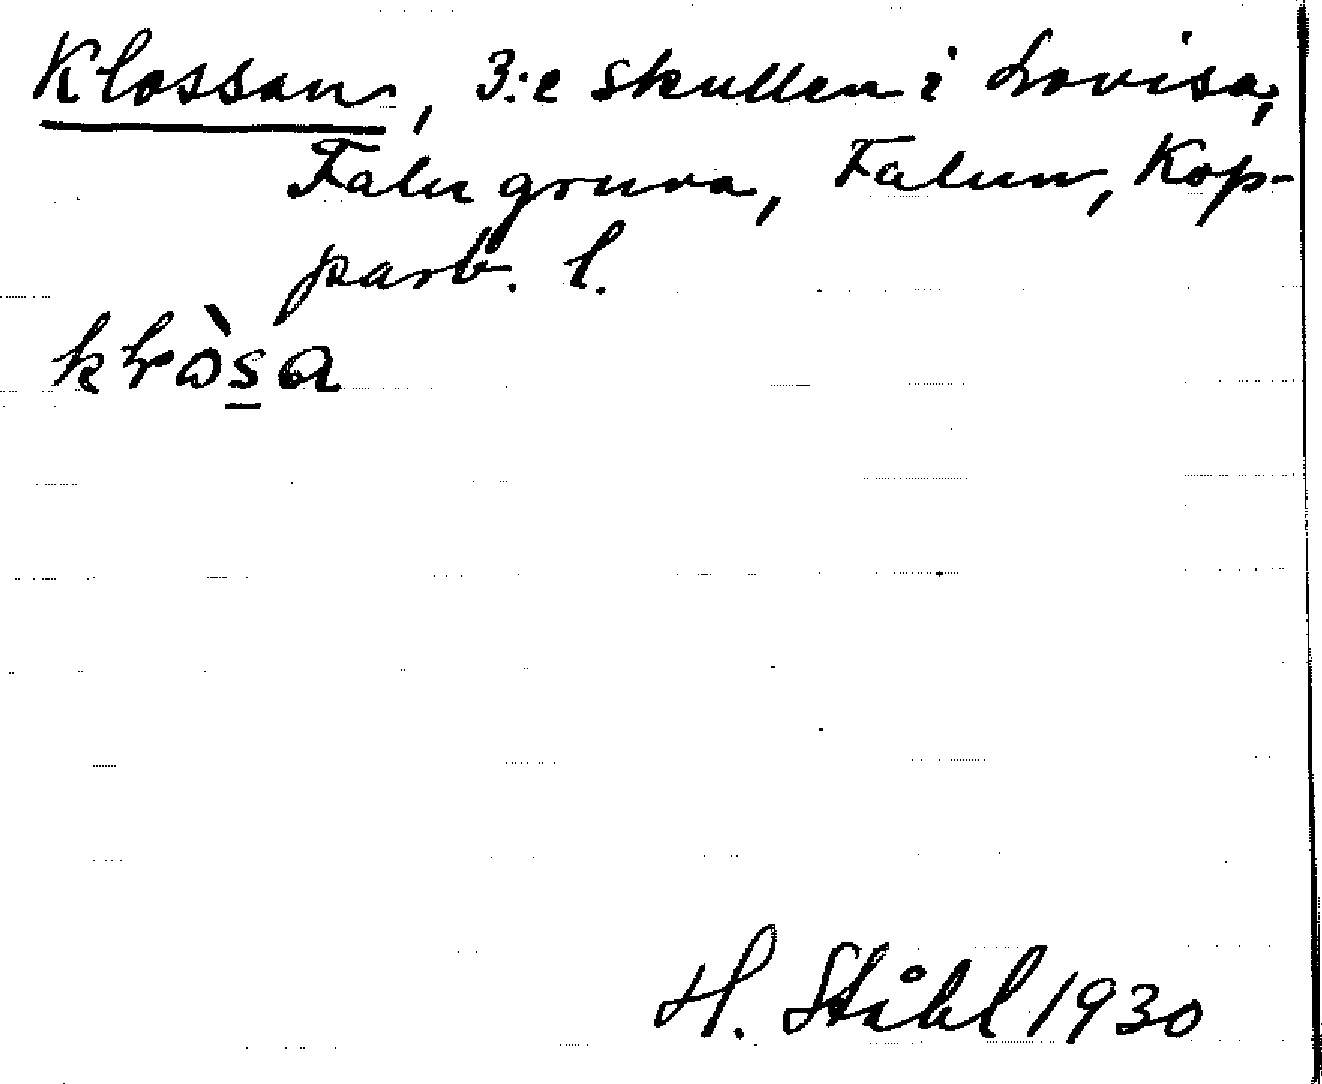 Klossan, 3:e skullen i Lovisa,
Falu gruva, Falun, Kop-
parb. l.
H. Ståhl 1930